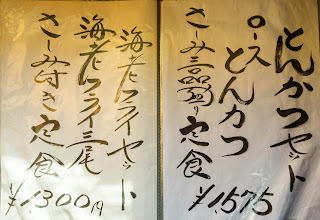 とんかつセット
ロースとんカツ
さしみ三品盛り定食
¥1,575
海老フライセット
海老フライ三尾
さしみ付き定食
¥1300円